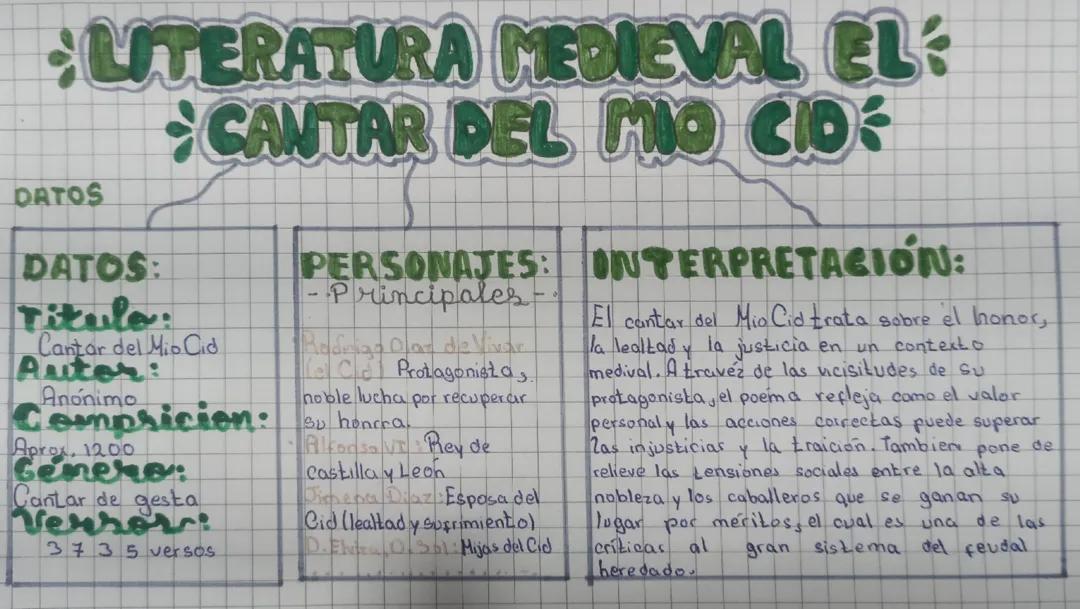 LITERATURA MEDIEVAL EL
CANTAR DEL MIO CID
DATOS
DATOS:
Titulo:
Cantar del Mio Cid
Autor:
Anónimo
Compricion:
Aprox. 1200
Género:
Cantar de gesta
Versos:
3735 versos
PERSONAJES:
-Principales-
Rodrigo Diaz de Vivar
(el Cid) Protagonista,
noble lucha por recuperar
su honrra.
Alfonso VI: Rey de
castilla y León
Jimena Diaz: Esposa del
Cid (lealtad y suprimiento)
D. Elvira, D. Sol: Mijas del Cid
INTERPRETACIÓN:
El cantar del Mio Cid trata sobre el honor,
la lealtad y la justicia en un contexto
medival. A travéz de las vicisitudes de su
protagonista, el poema refleja como el valor
personal y las acciones correctas puede superar
las injusticias y la traición. Tambien pone de
relieve las tensiones sociales entre la alta
nobleza y los caballeros que se ganan su
lugar por méritos, el cual es una de las
críticas al gran sistema del feudal
heredado.